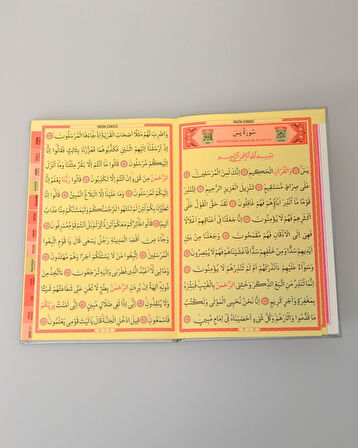 YASİN SURESİ
سُورَةُ يٰسٓ
بِسْمِ اللّٰهِ الرَّحْمٰنِ الرَّحِيمِ
يٰسٓ وَالْقُرْاٰنِ الْحَكِيمِ اِنَّكَ لَمِنَ الْمُرْسَلِينَ
عَلٰى صِرَاطٍ مُسْتَقِيمٍ تَنْزِيلَ الْعَزِيزِ الرَّحِيمِ لِتُنْذِرَ
قَوْمًا مَا اُنْذِرَ اٰبَاؤُهُمْ فَهُمْ غَافِلُونَ لَقَدْ حَقَّ الْقَوْلُ عَلٰى
اَكْثَرِهِمْ فَهُمْ لَا يُؤْمِنُونَ اِنَّا جَعَلْنَا فِى اَعْنَاقِهِمْ اَغْلَالًا
فَهِىَ اِلَى الْاَذْقَانِ فَهُمْ مُقْمَحُونَ وَجَعَلْنَا مِنْ بَيْنِ
اَيْدِيهِمْ سَدًّا وَمِنْ خَلْفِهِمْ سَدًّا فَاَغْشَيْنَاهُمْ فَهُمْ لَا يُبْصِرُونَ
وَسَوَاءٌ عَلَيْهِمْ ءَاَنْذَرْتَهُمْ اَمْ لَمْ تُنْذِرْهُمْ لَا يُؤْمِنُونَ
اِنَّمَا تُنْذِرُ مَنِ اتَّبَعَ الذِّكْرَ وَخَشِىَ الرَّحْمٰنَ بِالْغَيْبِ فَبَشِّرْهُ
بِمَغْفِرَةٍ وَاَجْرٍ كَرِيمٍ اِنَّا نَحْنُ نُحْيِى الْمَوْتٰى وَنَكْتُبُ
مَا قَدَّمُوا وَاٰثَارَهُمْ وَكُلَّ شَىْءٍ اَحْصَيْنَاهُ فِى اِمَامٍ مُبِينٍ
YASİN SURESİ
وَاضْرِبْ لَهُمْ مَثَلًا اَصْحَابَ الْقَرْيَةِ اِذْ جَاءَهَا الْمُرْسَلُونَ
اِذْ اَرْسَلْنَا اِلَيْهِمُ اثْنَيْنِ فَكَذَّبُوهُمَا فَعَزَّزْنَا بِثَالِثٍ فَقَالُوا اِنَّا
اِلَيْكُمْ مُرْسَلُونَ قَالُوا مَا اَنْتُمْ اِلَّا بَشَرٌ مِثْلُنَا وَمَا اَنْزَلَ
الرَّحْمٰنُ مِنْ شَىْءٍ اِنْ اَنْتُمْ اِلَّا تَكْذِبُونَ قَالُوا رَبُّنَا يَعْلَمُ اِنَّا
اِلَيْكُمْ لَمُرْسَلُونَ وَمَا عَلَيْنَا اِلَّا الْبَلَاغُ الْمُبِينُ قَالُوا اِنَّا
تَطَيَّرْنَا بِكُمْ لَئِنْ لَمْ تَنْتَهُوا لَنَرْجُمَنَّكُمْ وَلَيَمَسَّنَّكُمْ مِنَّا عَذَابٌ
اَلِيمٌ قَالُوا طَائِرُكُمْ مَعَكُمْ اَئِنْ ذُكِّرْتُمْ بَلْ اَنْتُمْ قَوْمٌ مُسْرِفُونَ
وَجَاءَ مِنْ اَقْصَا الْمَدِينَةِ رَجُلٌ يَسْعٰى قَالَ يَا قَوْمِ اتَّبِعُوا
الْمُرْسَلِينَ اتَّبِعُوا مَنْ لَا يَسْئَلُكُمْ اَجْرًا وَهُمْ مُهْتَدُونَ
وَمَا لِىَ لَا اَعْبُدُ الَّذِى فَطَرَنِى وَاِلَيْهِ تُرْجَعُونَ ءَاَتَّخِذُ مِنْ
دُونِهِ اٰلِهَةً اِنْ يُرِدْنِ الرَّحْمٰنُ بِضُرٍّ لَا تُغْنِ عَنِّى شَفَاعَتُهُمْ شَيْئًا
وَلَا يُنْقِذُونِ اِنِّى اِذًا لَفِى ضَلَالٍ مُبِينٍ اِنِّى اٰمَنْتُ بِرَبِّكُمْ
فَاسْمَعُونِ قِيلَ ادْخُلِ الْجَنَّةَ قَالَ يَا لَيْتَ قَوْمِى يَعْلَمُونَ